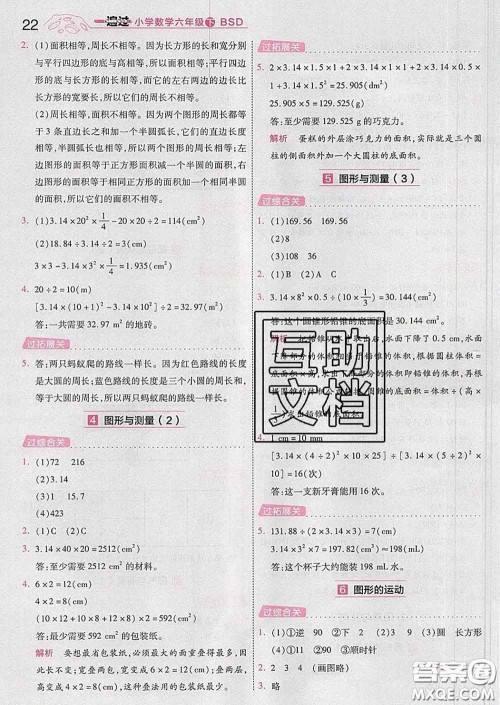 22 一遍过 小学数学六年级 下 BSD
2. (1)面积相等,周长不相等。因为长方形的长和宽分别
与平行四边形的底与高相等,所以面积相等;平行四边
形的底与长方形的长相等,而它的左右两边的边长比
长方形的宽要长,所以它们的周长不相等。
(2)周长相等,面积不相等。因为两个图形的周长都等
于 3 条直边长之和加一个半圆弧长,它们的直边长相
等,半圆弧长也相等,所以周长相等。左边图形的面积
等于正方形面积减一个半圆的面积,右边图形的面积
等于相同正方形的面积加一个相同半圆
的面积,所以它们的面积不相等。
3. (1)3.14×20²×1/4-20×20÷2=114(cm²)
(2)3.14×2÷3.14÷2=3(cm)
3×3-3.14×3²×1/4=1.935(cm²)
4. 20÷2=10(m)
[3.14×(10+1)²-3.14×10²]÷2=32.97(m²)
答:一共需要 32.97 m² 的地砖。
过拓展关
答:两只蚂蚁爬的路线一样长。因为红色路线的长度
是大圆的周长;蓝色路线的长度是三个小圆的周长和,
等于大圆的周长,所以两只蚂蚁爬的路线一样长。
4 图形与测量(2)
过综合关
1. (1)72 216
(2)150
(3)3.14
(4)423
2. (1)C (2)C
3. 3.14×40×20=2512(cm²)
答:至少需要 2512 cm² 的材料。
4. 6×2=12(cm)
4×2=8(cm)
(10×12+10×8+12×8)×2=592(cm²)
答:最少需要 592 cm² 的包装纸。
解析 要想最省包装纸,那么重叠的面重叠得最多,因
此,长不变,宽重叠两包,宽变成 6×2=12(cm),高变成
4×2=8(cm),这种叠法用的包装纸最少。
过拓展关
5. 2×3.14×1.5×1+3.14×1×1+3.14×0.5×
1+3.14×1.5²=25.905(dm²)
25.905×5=129.525(g)
答:至少需要 129.525 g 的巧克力。
解析 蛋糕的外层涂巧克力的面积,实际就是三个圆
柱的侧面积外加一个大圆柱的底面积。
5 图形与测量(3)
过综合关
1. (1)169.56 169.56
(2)8
(3)108 36
2. (1)B (2)A C
3. 3.14×8²×0.5÷(10×1/3)=30.144(cm²)
答:这个圆锥形铅锤的底面积是 30.144 cm²。
1 cm=10 mm
[3.14×(4÷2)²×10×36]÷[3.14×(5÷2)²×
10]≈16(次)
答:这一支新牙膏能用 16 次。
过拓展关
5. 131.88÷(2×3.14×3)=7(cm)
3.14×3²×7=197.82(cm³)≈198(cm³)
答:这个杯子大约能装 198 cm³ 水。
6 图形的运动
过综合关
1. (1)①逆 90 ②下 2 (2)圆 长方形
(3)①180 ②90 ③顺时针
2. 2 3 4 (画图略)
3. 略
百助文档
答案圈
MXQE.COM